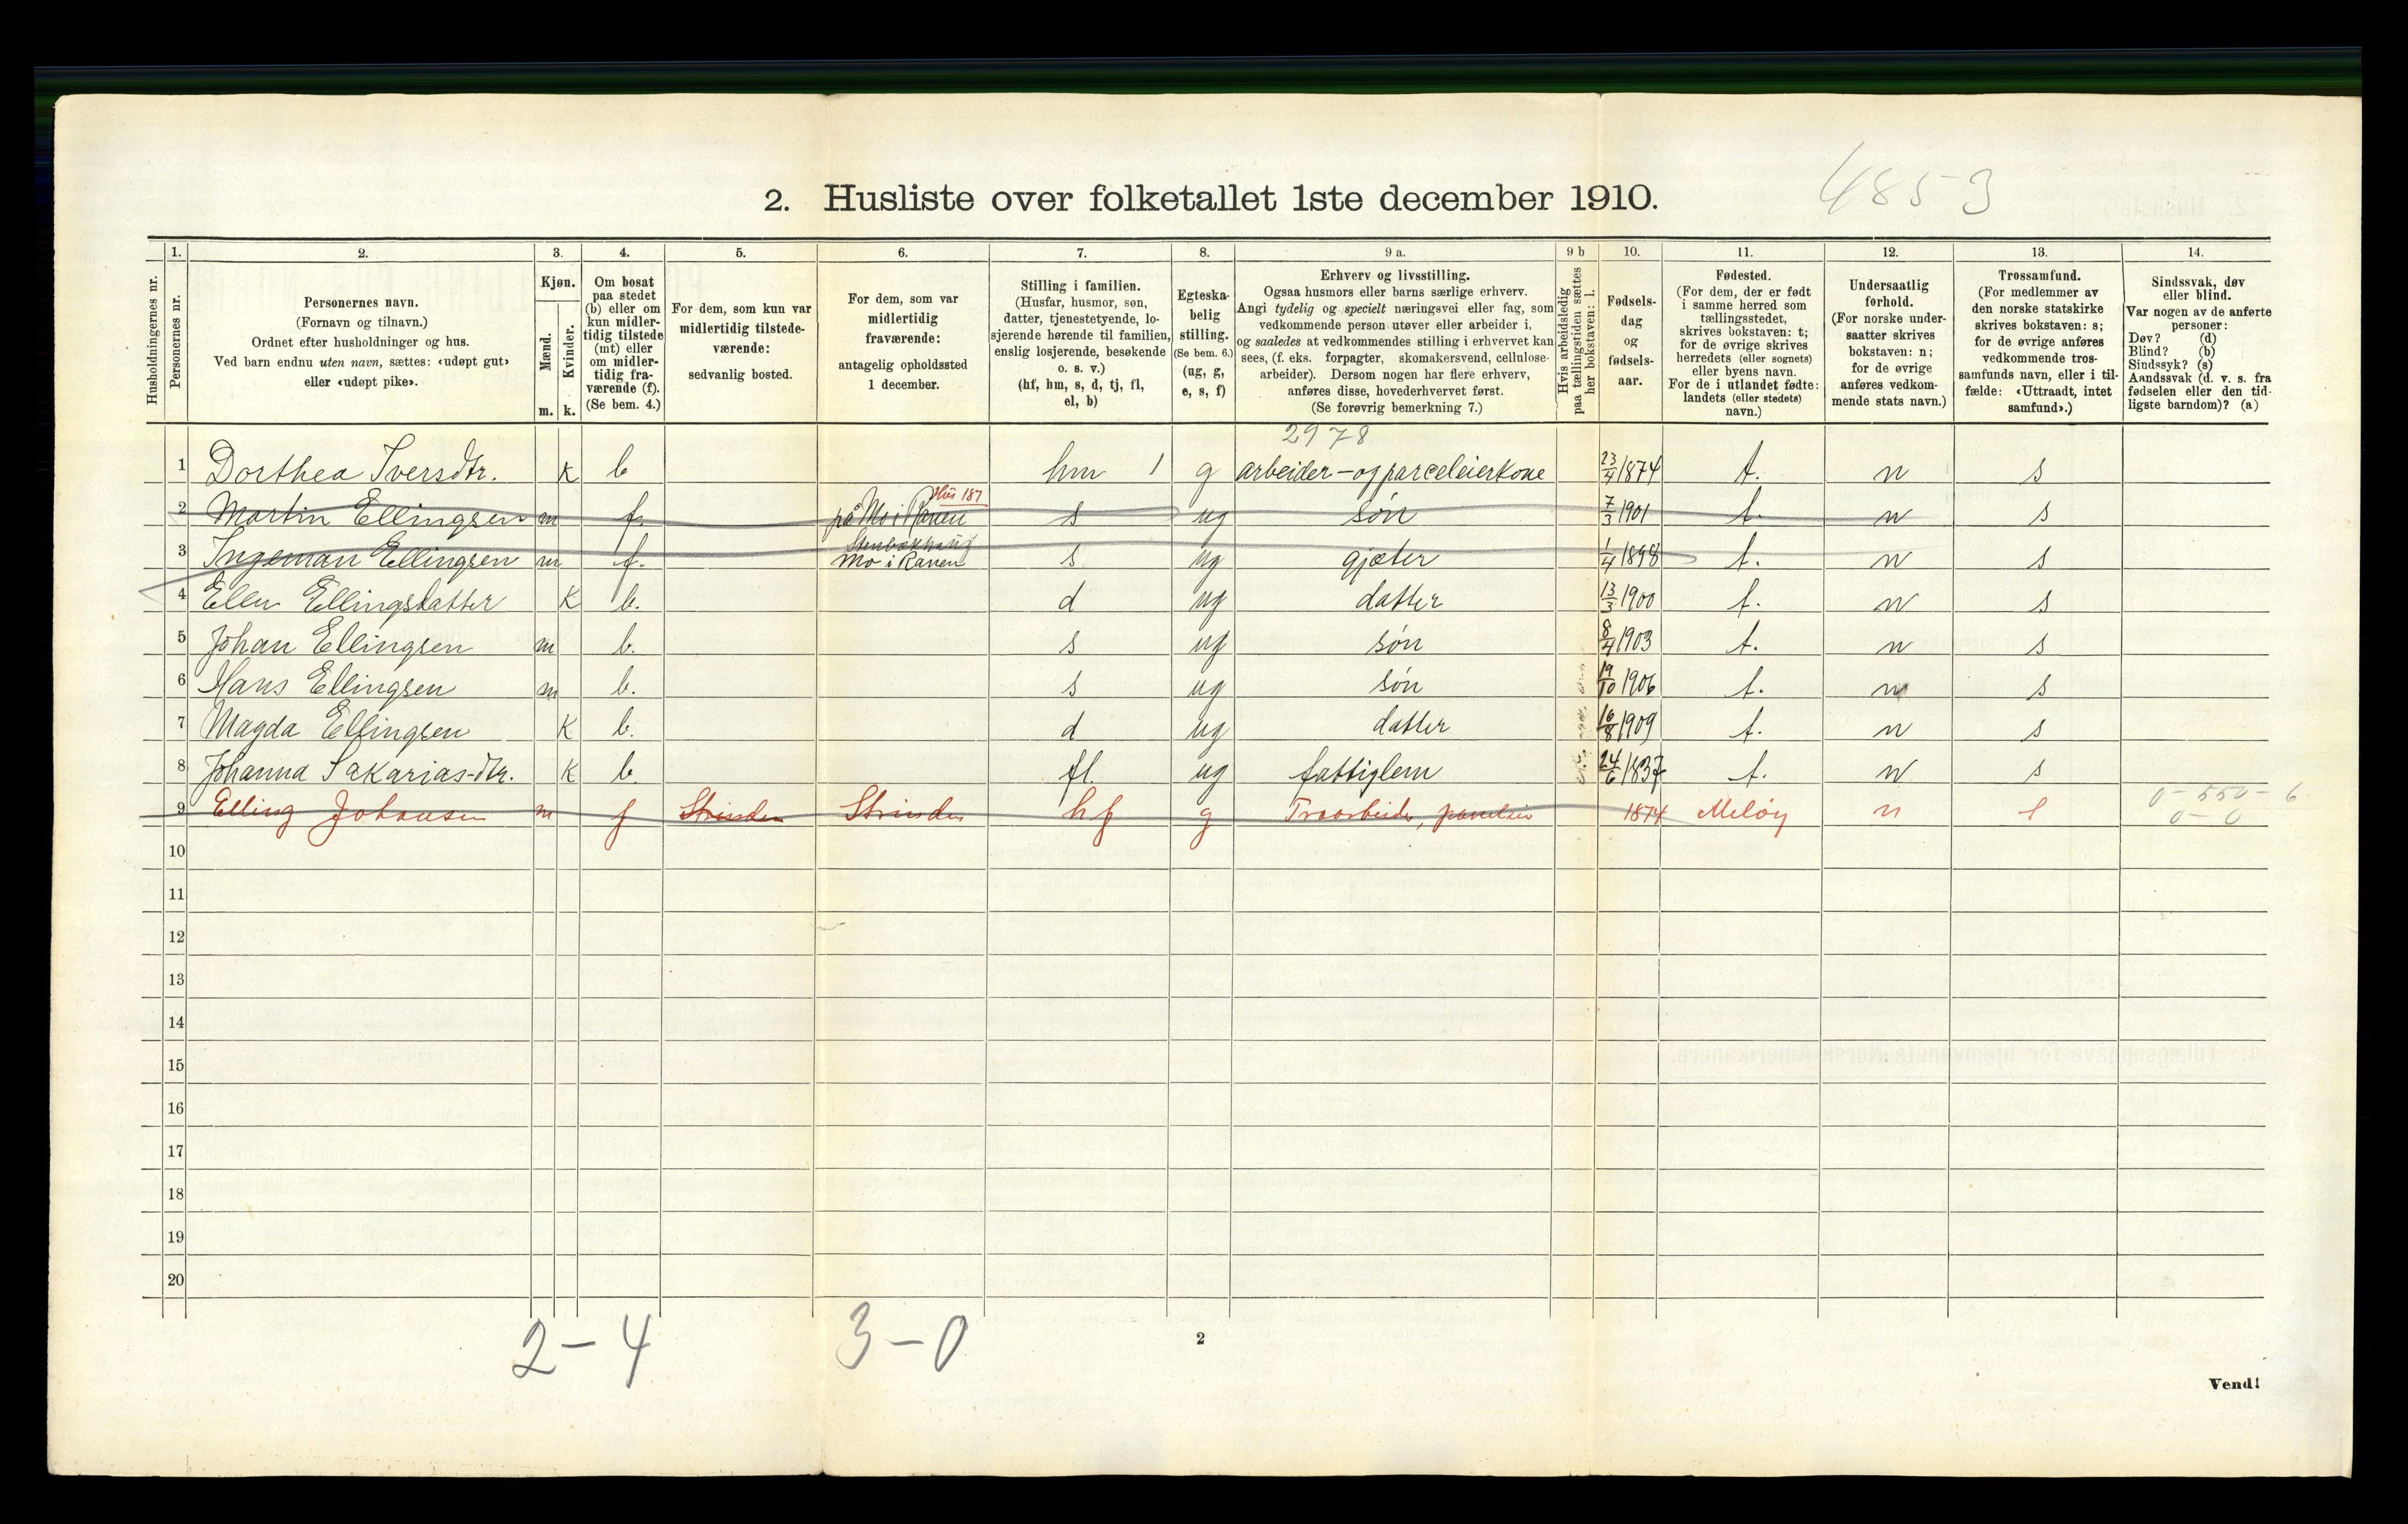 4853
2. Husliste over folketallet 1ste december 1910.
Husholdningernes nr.
1. Personernes nr.
2. Personernes navn.
(Fornavn og tilnavn.)
Ordnet efter husholdninger og hus.
Ved barn endnu uten navn, sættes: «udøpt gut»
eller «udøpt pike».
3. Kjøn.
Mænd. m.
Kvinder. k.
4. Om bosat
paa stedet
(b) eller om
kun midler-
tidig tilstede
(mt) eller
om midler-
tidig fra-
værende (f).
(Se bem. 4.)
5. For dem, som kun var
midlertidig tilstede-
værende:
sedvanlig bosted.
6. For dem, som var
midlertidig
fraværende:
antagelig opholdssted
1 december.
7. Stilling i familien.
(Husfar, husmor, søn,
datter, tjenestetyende, lo-
sjerende hørende til familien,
enslig losjerende, besøkende
o. s. v.)
(hf, hm, s, d, tj, fl,
el, b)
8. Egteska-
belig
stilling.
(Se bem. 6.)
(ug, g,
e, s, f)
9 a. Erhverv og livsstilling.
Ogsaa husmors eller barns særlige erhverv.
Angi tydelig og specielt næringsvei eller fag, som
vedkommende person utøver eller arbeider i,
og saaledes at vedkommendes stilling i erhvervet kan
sees, (f. eks. forpagter, skomakersvend, cellulose-
arbeider). Dersom nogen har flere erhverv,
anføres disse, hovederhvervet først.
(Se forøvrig bemerkning 7.)
9 b Hvis arbeidsledig
paa tællingstiden sættes
her bokstaven: l.
10. Fødsels-
dag
og
fødsels-
aar.
11. Fødested.
(For dem, der er født
i samme herred som
tællingsstedet,
skrives bokstaven: t;
for de øvrige skrives
herredets (eller sognets)
eller byens navn.
For de i utlandet fødte:
landets (eller stedets)
navn.)
12. Undersaatlig
forhold.
(For norske under-
saatter skrives
bokstaven: n;
for de øvrige
anføres vedkom-
mende stats navn.)
13. Trossamfund.
(For medlemmer av
den norske statskirke
skrives bokstaven: s;
for de øvrige anføres
vedkommende tros-
samfunds navn, eller i til-
fælde: «Uttraadt, intet
samfund».)
14. Sindssvak, døv
eller blind.
Var nogen av de anførte
personer:
Døv? (d)
Blind? (b)
Sindssyk? (s)
Aandssvak (d. v. s. fra
fødselen eller den tid-
ligste barndom)? (a)
2978
1 Dorthea Iversdtr. K b hm 1 g arbeider-og parceleierkone 23/4 1874 t. n s
Hus 187
2 Martin Ellingsen m f. på Mo i Ranen s ug søn 7/3 1901 t. n s
3 Ingeman Ellingsen m f. Mo i Ranen s ug gjæter 1/4 1898 t. n s
4 Ellen Ellingsdatter K b. d ug datter 13/3 1900 t. n s
5 Johan Ellingsen m b. s ug søn 8/4 1903 t. n s
6 Hans Ellingsen m b. s ug søn 19/10 1906 t. n s
7 Magda Ellingsen K b. d ug datter 16/8 1909 t. n s
8 Johanna Sakarias-dtr. K b. fl. ug fattiglem 24/6 1837 t. n s
9 Elling Johansen m f Strinden Strinden hf g 1874 Meløy n s
0-550-6
0-0
10
11
12
13
14
15
16
17
18
19
20
2-4 3-0
2
Vend!